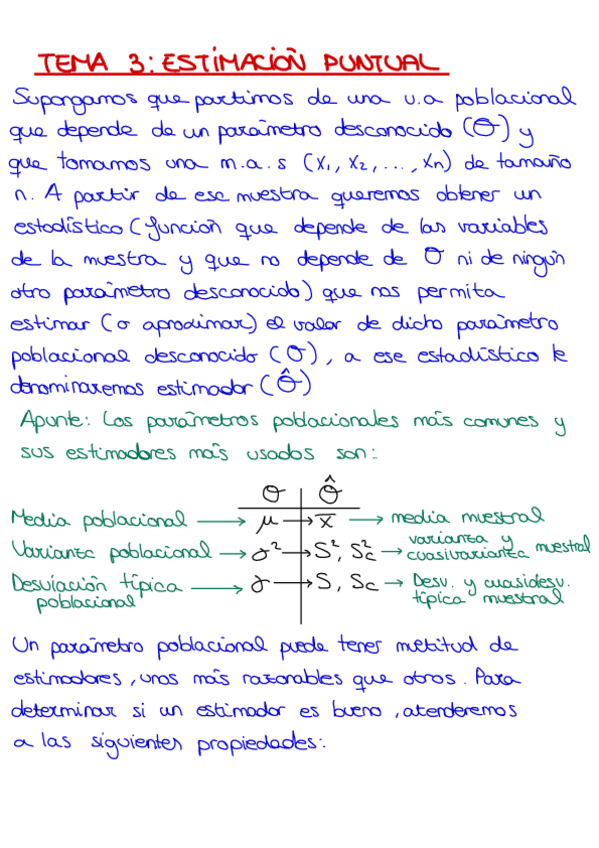 TEMA 3: ESTIMACIÓN PUNTUAL
Supongamos que partimos de una v.a poblacional
que depende de un parámetro desconocido (θ) y
que tomamos una m.a.s (X₁, X₂, ..., Xn) de tamaño
n. A partir de ese muestra queremos obtener un
estadístico (función que depende de las variables
de la muestra y que no depende de θ ni de ningún
otro parámetro desconocido) que nos permita
estimar (o aproximar) el valor de dicho parámetro
poblacional desconocido (θ), a ese estadístico le
denominaremos estimador (θ̂)
Apunte: Los parámetros poblacionales más comunes y
sus estimadores más usados son:
θ | θ̂
Media poblacional → μ → x̄ → media muestral
Varianza poblacional → σ² → S², Sc² → varianza y cuasivarianza muestral
Desviación típica poblacional → σ → S, Sc → Desv. y cuasidesv. típica muestral
Un parámetro poblacional puede tener metitud de
estimadores, unos más razonables que otros. Para
determinar si un estimador es bueno, atenderemos
a las siguientes propiedades: